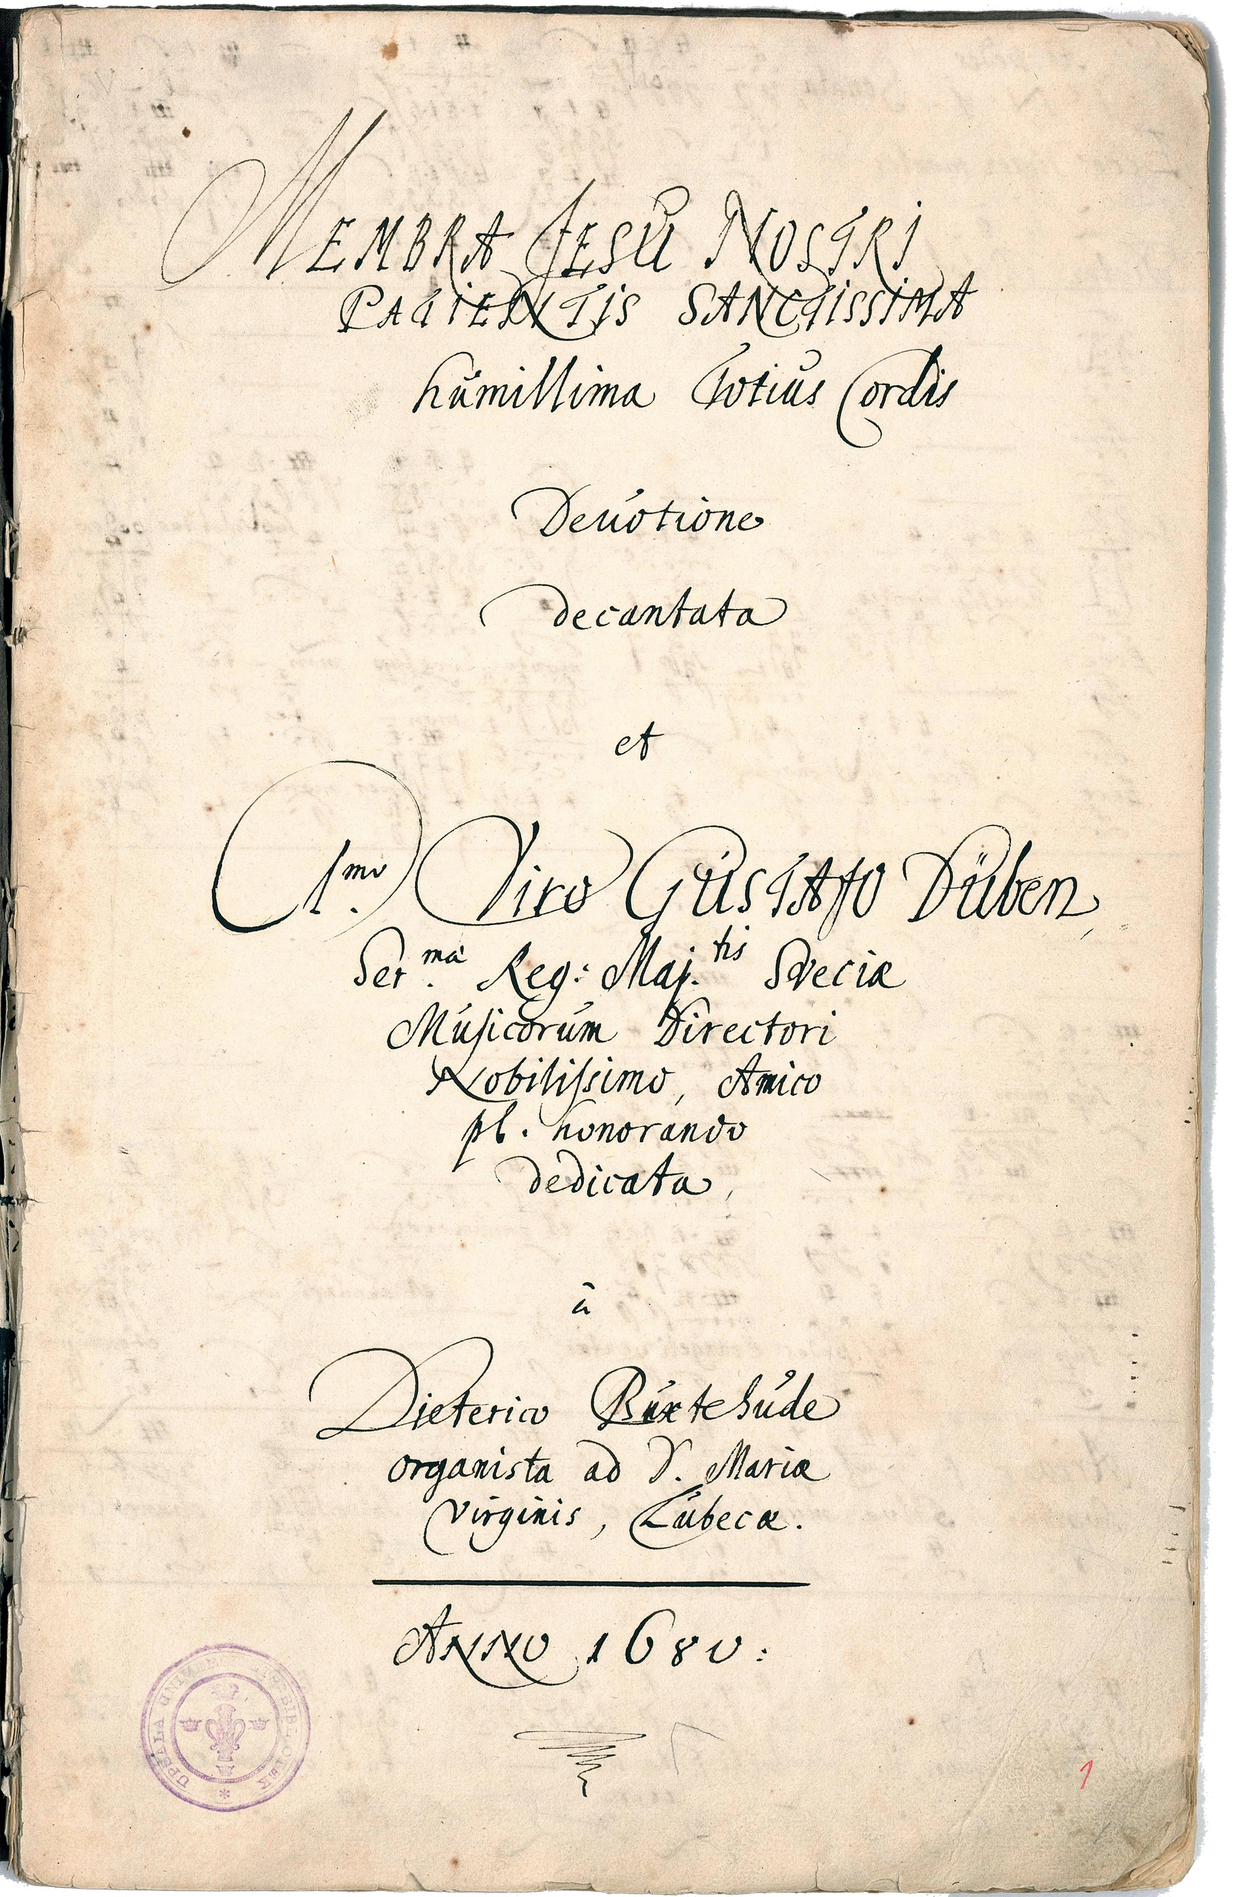 MEMBRA JESU NOSTRI
PATIENTIS SANCTISSIMA
humillima Totius Cordis
Devotione
decantata
et
Cl.mo Viro GUSTAfO Düben,
Ser.mae Reg: Maj.tis Sveciæ
Musicorum Directori
Nobilissimo, Amico
pl. honorando
dedicata,
â
Dieterico Buxtehude
organista ad S. Mariæ
Virginis, Lübecæ.
ANNO 1680:
UPSALA UNIV BIBLIOTEK
1